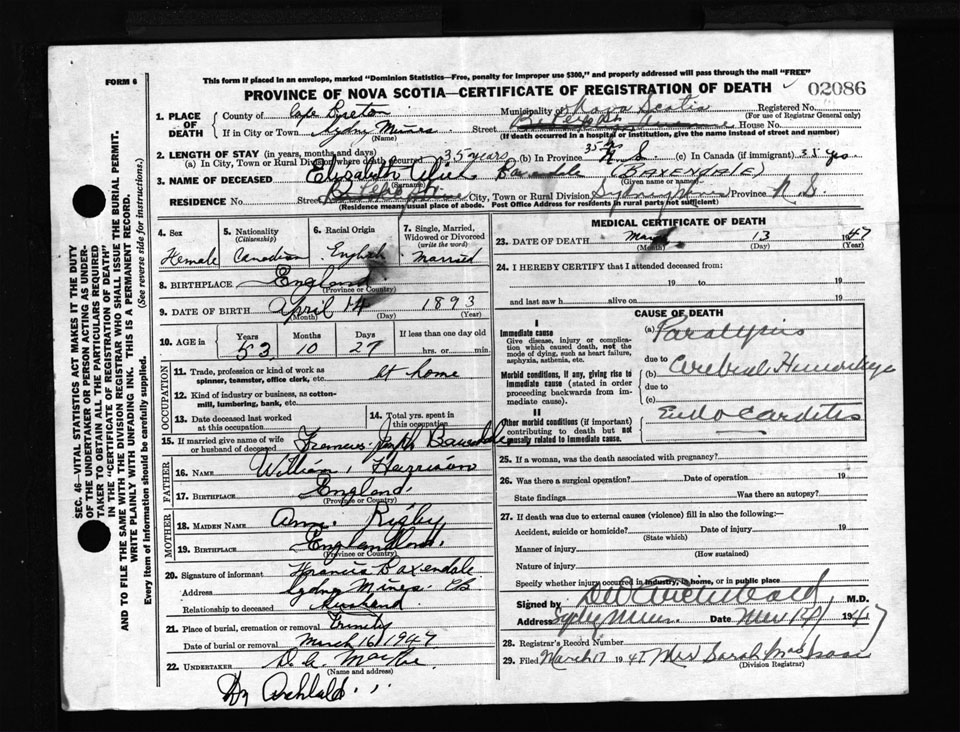 FORM 6
This form if placed in an envelope, marked "Dominion Statistics—Free, penalty for improper use $300," and properly addressed will pass through the mail "FREE"
PROVINCE OF NOVA SCOTIA—CERTIFICATE OF REGISTRATION OF DEATH 02086
1. PLACE OF DEATH County of Cape Breton Municipality of Nova Scotia Registered No.
(For use of Registrar General only)
If in City or Town Sydney Mines Street House No.
(Name) (If death occurred in a hospital or institution, give the name instead of street and number)
2. LENGTH OF STAY (in years, months and days)
(a) In City, Town or Rural Division where death occurred 35 years (b) In Province 35 yrs N.S. (c) In Canada (if immigrant) 35 yrs.
3. NAME OF DECEASED Elizabeth Baxendale (BAXENDALE)
(Surname) (Given name or names)
RESIDENCE No. Street City, Town or Rural Division Sydney Mines Province N.S.
(Residence means usual place of abode. Post Office Address for residents in rural parts not sufficient)
4. Sex Female
5. Nationality (Citizenship) Canadian
6. Racial Origin English
7. Single, Married, Widowed or Divorced (write the word) Married
8. BIRTHPLACE England
(Province or Country)
9. DATE OF BIRTH April 14 1893
(Month) (Day) (Year)
10. AGE in Years 53 Months 10 Days 27 If less than one day old hrs. or min.
OCCUPATION
11. Trade, profession or kind of work as spinner, teamster, office clerk, etc. at home
12. Kind of industry or business, as cotton-mill, lumbering, bank, etc.
13. Date deceased last worked at this occupation
14. Total yrs. spent in this occupation
15. If married give name of wife or husband of deceased Francis Joseph Baxendale
FATHER
16. NAME William Harrison
17. BIRTHPLACE England
(Province or Country)
MOTHER
18. MAIDEN NAME Ann Rigby
19. BIRTHPLACE England
(Province or Country)
20. Signature of informant Francis Baxendale
Address Sydney Mines CB
Relationship to deceased Husband
21. Place of burial, cremation or removal Trinity
Date of burial or removal March 16 1947
22. UNDERTAKER
(Name and address)
Dr Archibald
MEDICAL CERTIFICATE OF DEATH
23. DATE OF DEATH March 13 1947
(Month) (Day) (Year)
24. I HEREBY CERTIFY that I attended deceased from:
19 to 19
and last saw h alive on 19
CAUSE OF DEATH
I
Immediate cause
Give disease, injury or complication which caused death, not the mode of dying, such as heart failure, asphyxia, asthenia, etc.
(a) Paralysis
due to
Morbid conditions, if any, giving rise to immediate cause (stated in order proceeding backwards from immediate cause).
(b) Cerebral Hemorrhage
due to
(c)
II
Other morbid conditions (if important) contributing to death but not causally related to immediate cause.
Endocarditis
25. If a woman, was the death associated with pregnancy?
26. Was there a surgical operation? Date of operation 19
State findings Was there an autopsy?
27. If death was due to external causes (violence) fill in also the following:—
Accident, suicide or homicide? Date of injury 19
(State which)
Manner of injury
(How sustained)
Nature of injury
Specify whether injury occurred in industry, in home, or in public place
Signed by Archibald M.D.
Address Sydney Mines Date 1947
28. Registrar's Record Number
29. Filed March 17 1947 Mrs Sarah
(Division Registrar)
SEC. 46—VITAL STATISTICS ACT MAKES IT THE DUTY OF THE UNDERTAKER OR PERSON ACTING AS UNDERTAKER TO OBTAIN ALL THE PARTICULARS REQUIRED IN THE "CERTIFICATE OF REGISTRATION OF DEATH" AND TO FILE THE SAME WITH THE DIVISION REGISTRAR WHO SHALL ISSUE THE BURIAL PERMIT.
WRITE PLAINLY WITH UNFADING INK. THIS IS A PERMANENT RECORD.
Every item of information should be carefully supplied. (See reverse side for instructions.)